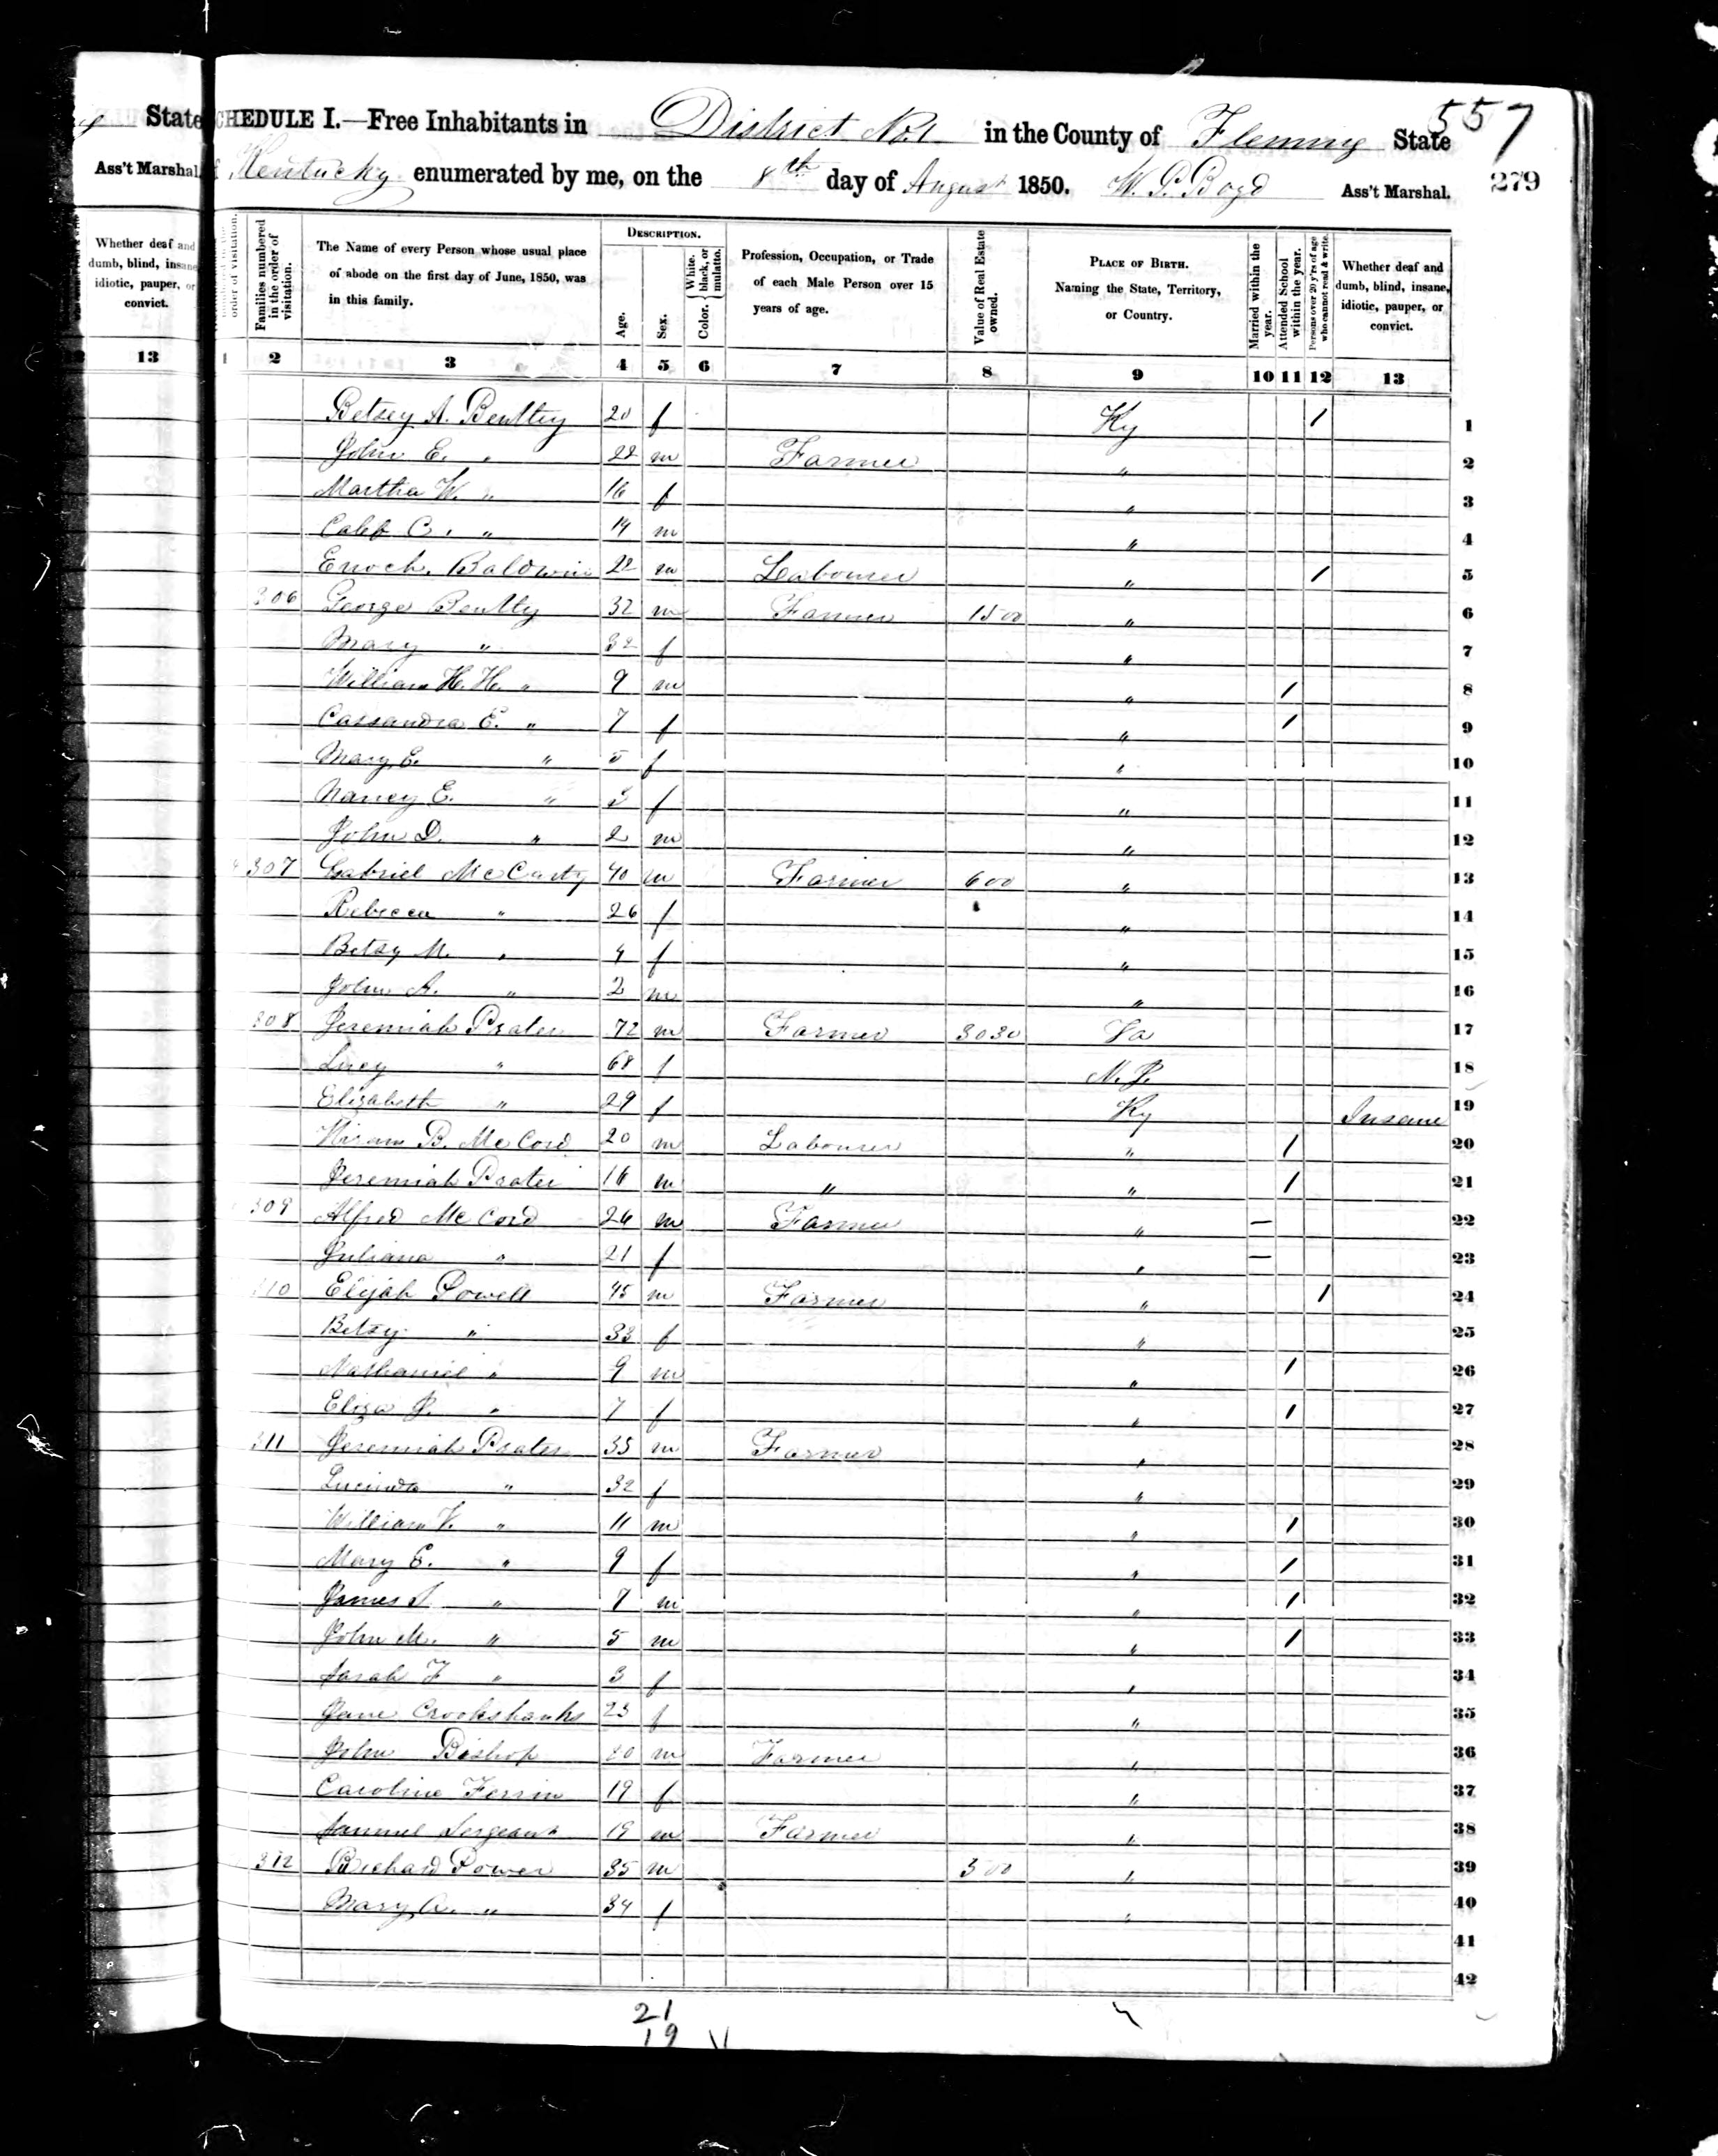 557
State SCHEDULE I.—Free Inhabitants in District No. 1 in the County of Fleming State
Ass't Marshal. of Kentucky enumerated by me, on the 8th day of August 1850. W. P. Boyd Ass't Marshal. 279
Whether deaf and dumb, blind, insane, idiotic, pauper, or convict.
order of visitation.
Families numbered in the order of visitation.
The Name of every Person whose usual place of abode on the first day of June, 1850, was in this family.
DESCRIPTION.
Age.
Sex.
Color. { White, black, or mulatto.
Profession, Occupation, or Trade of each Male Person over 15 years of age.
Value of Real Estate owned.
PLACE OF BIRTH. Naming the State, Territory, or Country.
Married within the year.
Attended School within the year.
Persons over 20 y'rs of age who cannot read & write.
Whether deaf and dumb, blind, insane, idiotic, pauper, or convict.
13 1 2 3 4 5 6 7 8 9 10 11 12 13
Betsey A. Bentley 20 f Ky / 1
John E. " 22 m Farmer " 2
Martha W. " 16 f " 3
Caleb C. " 14 m " 4
Enoch Baldwin 22 m Labourer " / 5
306 George Bentley 32 m Farmer 1500 " 6
Mary " 32 f " 7
William H. H. " 9 m " / 8
Cassandra E. " 7 f " / 9
Mary E. " 5 f " 10
Nancy E. " 3 f " 11
John D. " 2 m " 12
307 Gabriel McCarty 40 m Farmer 600 " 13
Rebecca " 26 f " 14
Betsy M. " 4 f " 15
John A. " 2 m " 16
308 Jeremiah Prater 72 m Farmer 3030 Va 17
Lucy " 68 f N. J. 18
Elizabeth " 29 f Ky Insane 19
Hiram B. McCord 20 m Labourer " / 20
Jeremiah Prater 16 m " " / 21
309 Alfred McCord 26 m Farmer " — 22
Juliana " 21 f " — 23
310 Elijah Powell 45 m Farmer " / 24
Betsy " 33 f " 25
Nathaniel " 9 m " / 26
Eliza J. " 7 f " / 27
311 Jeremiah Prater 35 m Farmer " 28
Lucinda " 32 f " 29
William V. " 11 m " / 30
Mary E. " 9 f " / 31
James " 7 m " / 32
John M. " 5 m " / 33
Sarah F " 3 f " 34
Jane Crookshanks 23 f " 35
John Bishop m Farmer " 36
Caroline Ferrin 19 f " 37
Samuel Sergeant 19 m Farmer " 38
312 Richard Power 35 m 300 " 39
Mary A. " 34 f " 40
41
42
21
19